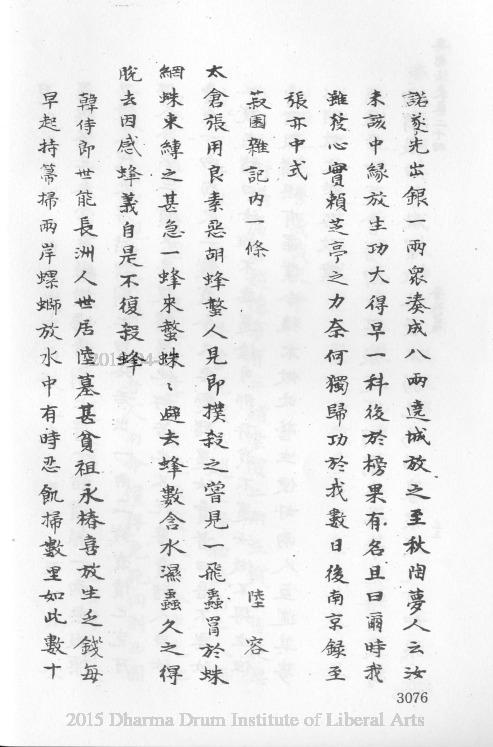 諾遂先出銀一兩眾湊成八兩遠城放之至秋闈夢人云汝
未該中緣放生功大得早一科後於榜果有名且曰爾時我
雖發心實賴芝亭之力奈何獨歸功於我數日後南京録至
張亦中式
菽園雜記内一條　陸容
太倉張用良素惡胡蜂螫人見即撲殺之嘗見一飛蟲罥於蛛
網蛛束縛之甚急一蜂來螫蛛、避去蜂數含水濕蟲久之得
脫去因感蜂義自是不復殺蜂
韓侍郎世能長洲人世居陸墓甚貧祖永椿喜放生乏錢每
早起持箒掃兩岸螺螄放水中有時忍飢掃數里如此數十
3076
2015 Dharma Drum Institute of Liberal Arts